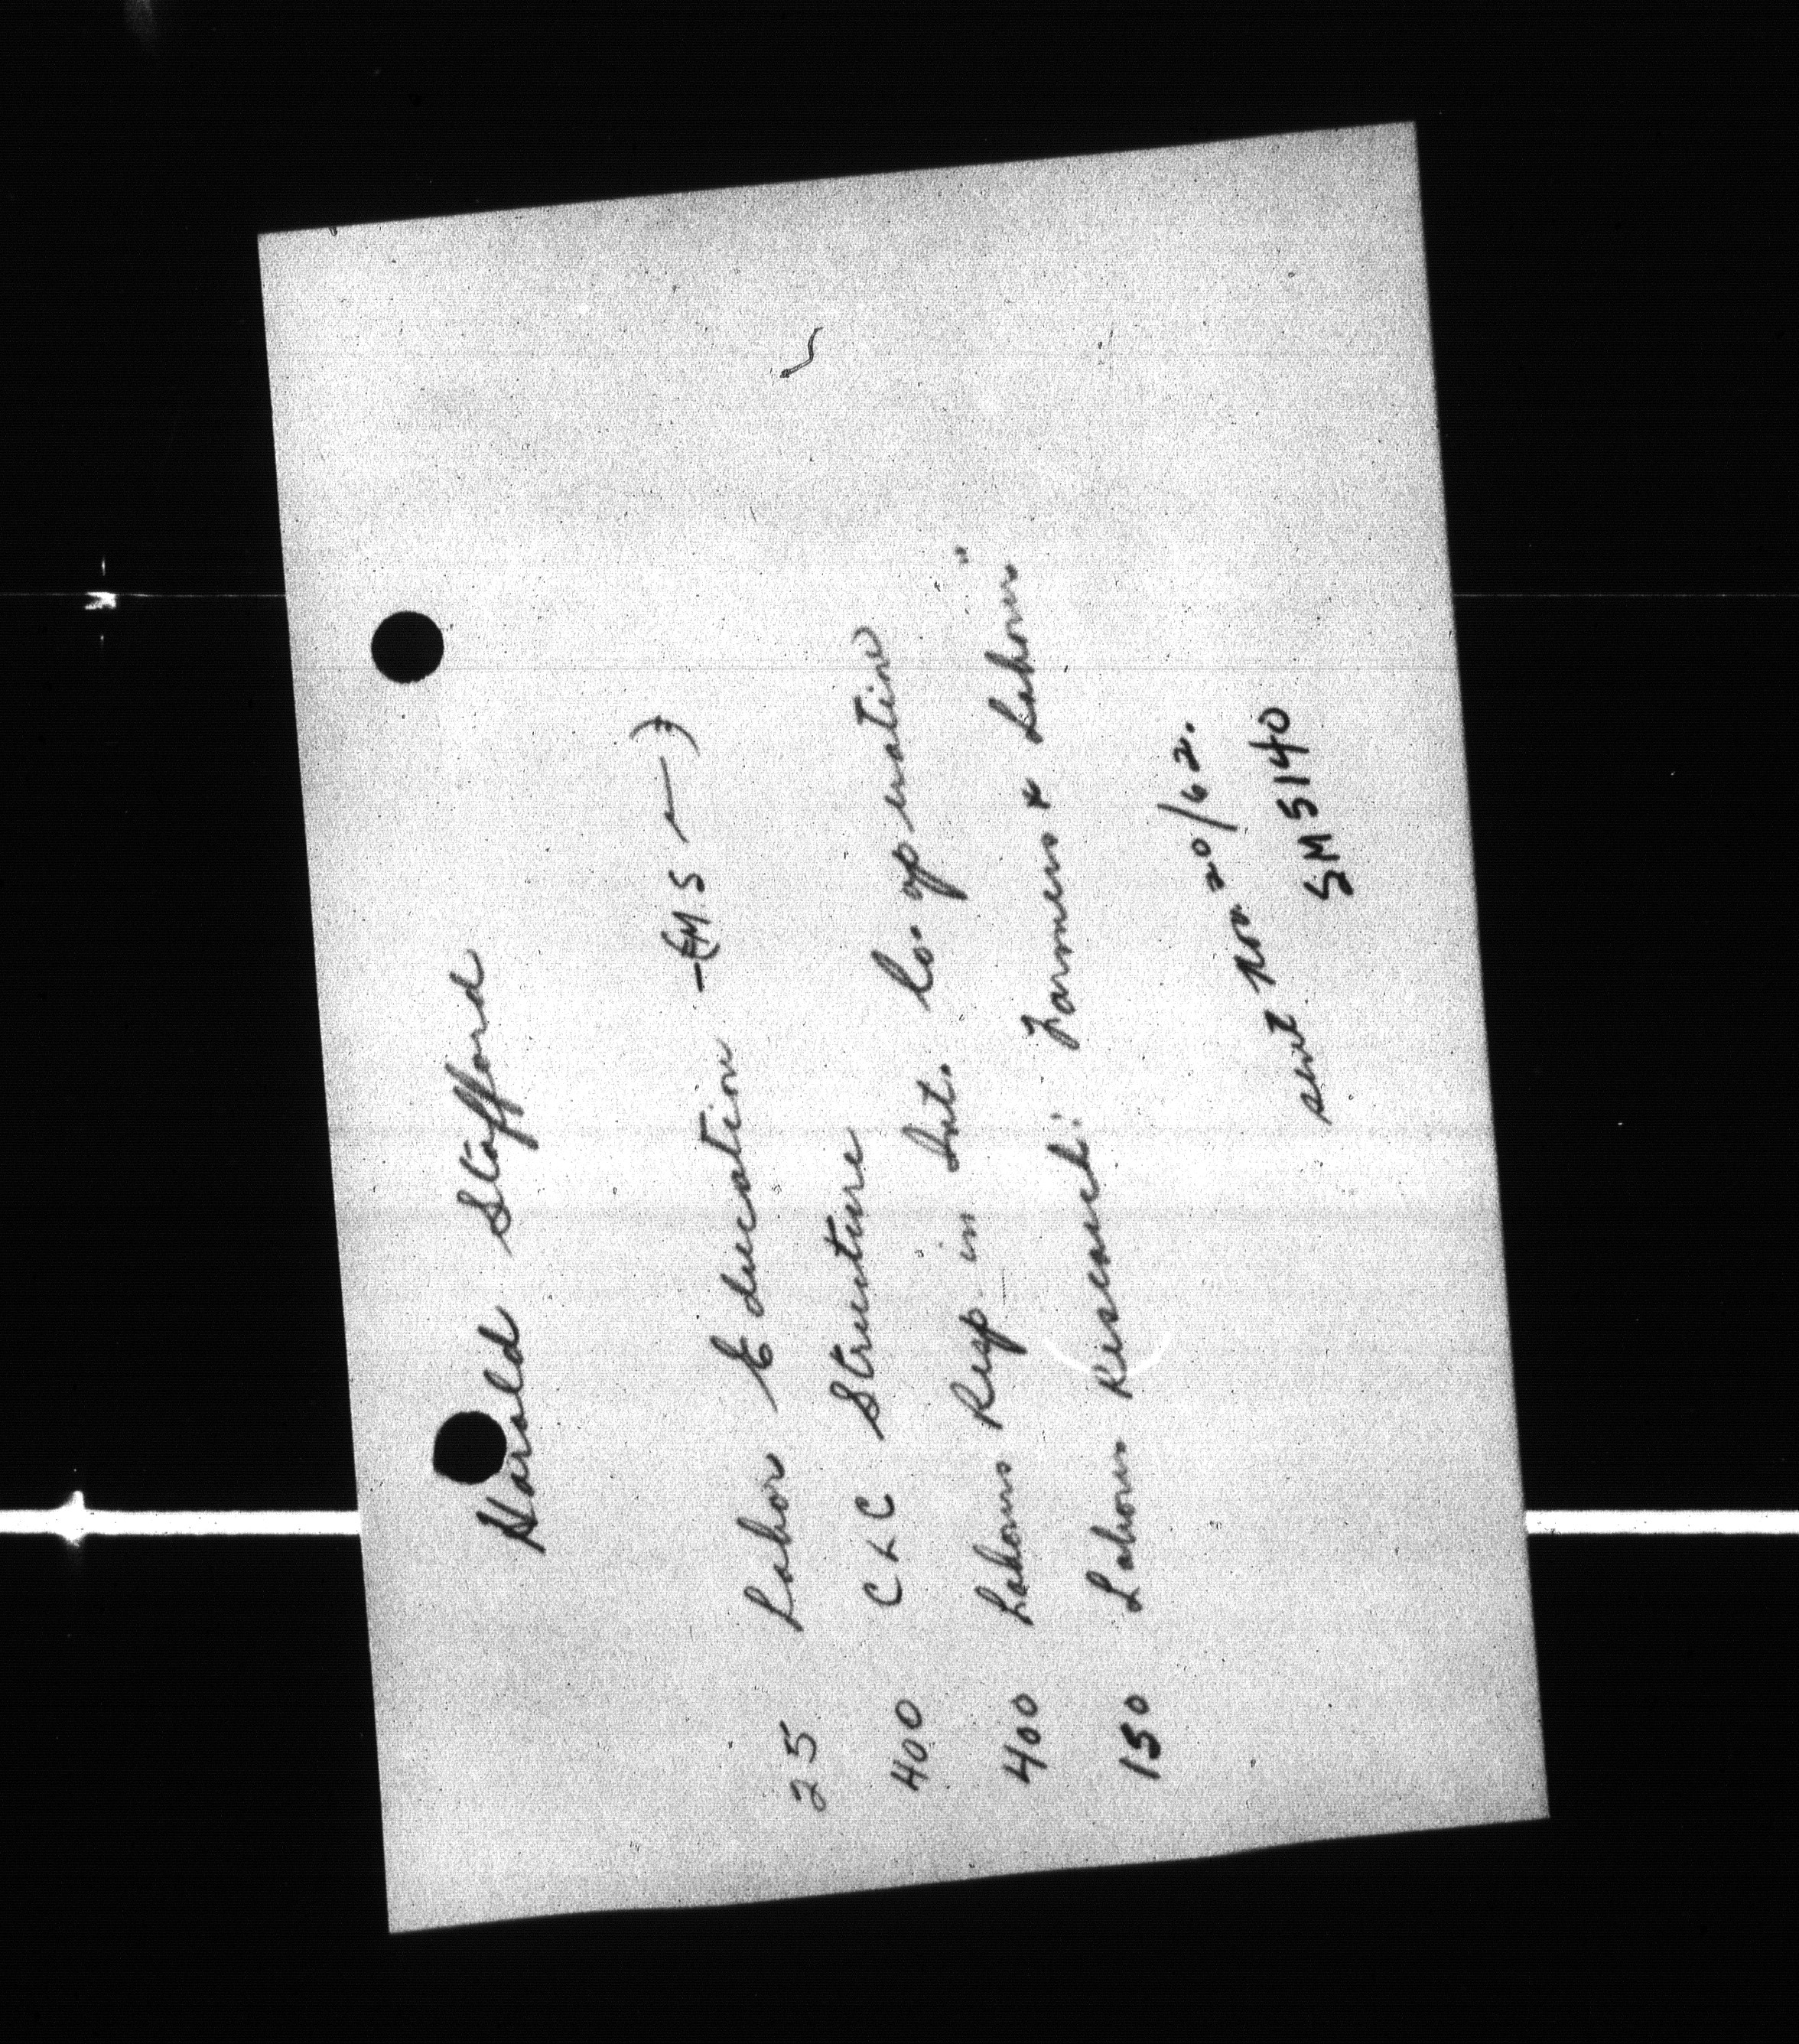 Harald Stafford
25 Labor Education -(M.S —)
400 CLC Structure
400 Labours Resp in Int. Co-operation"
150 Labours Research: Farmers & Labour"
sent Nov. 20/62.
SM 5140